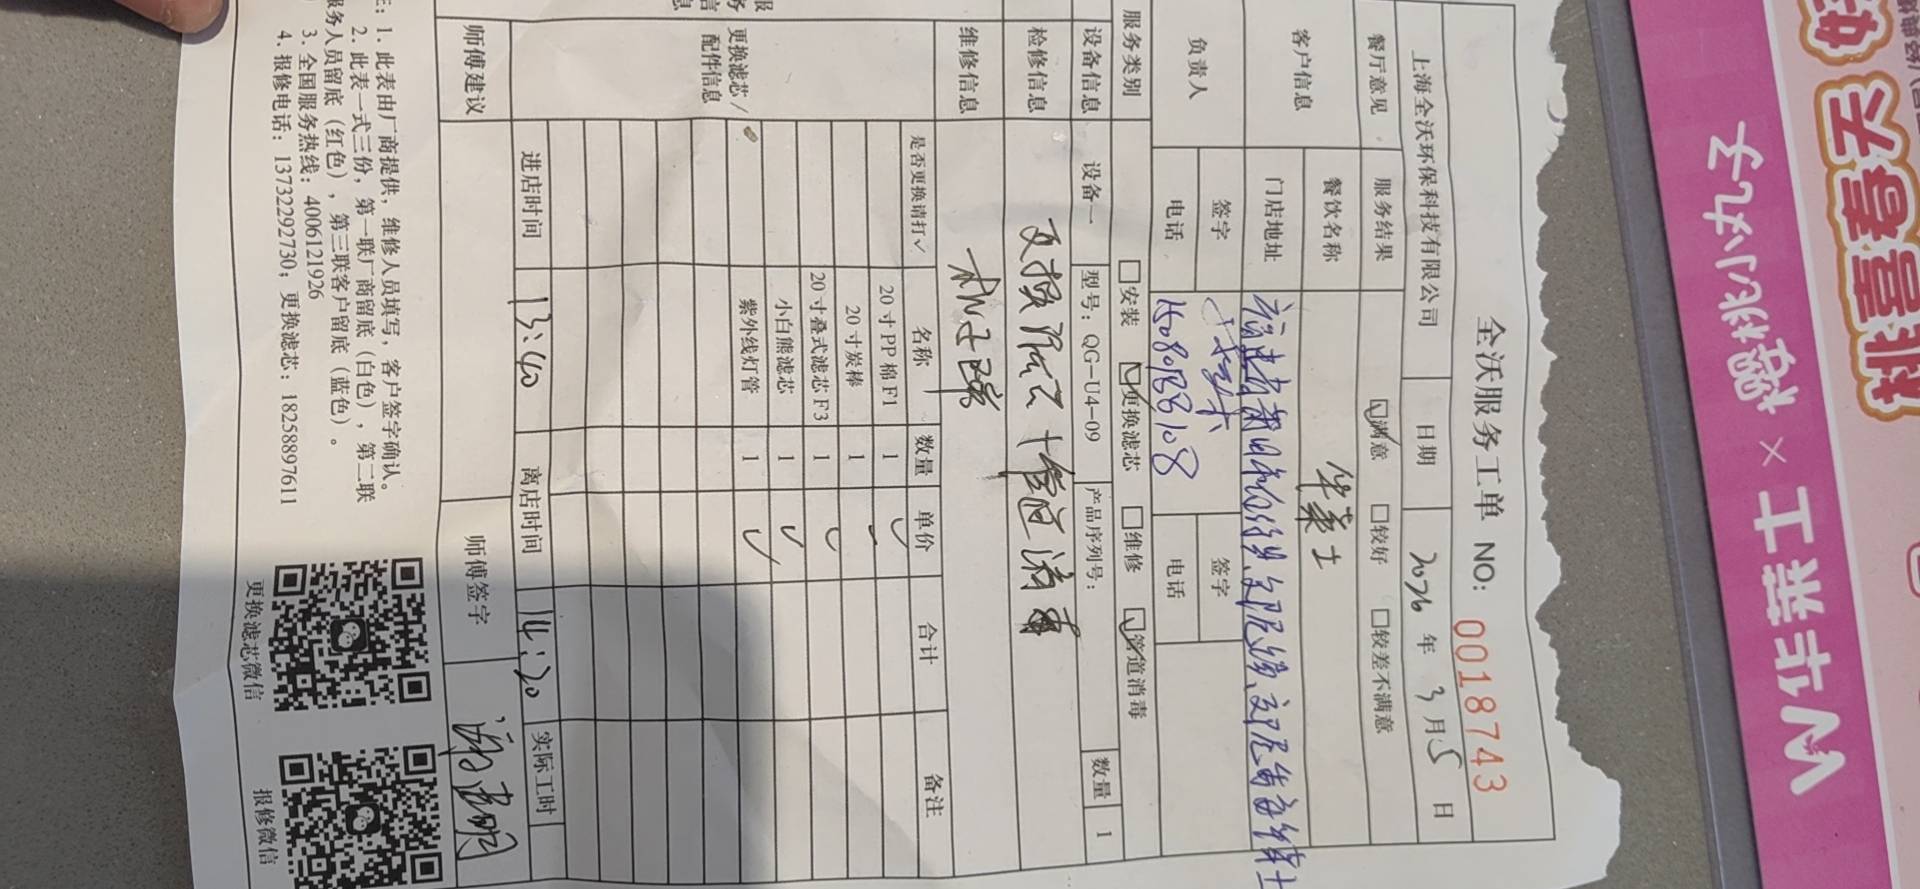 全沃服务工单 NO: 0018743
上海全沃环保科技有限公司 日期 2026 年 3 月 5 日
餐厅意见 服务结果 ☑满意 □较好 □较差不满意
客户信息 餐饮名称 华莱士
门店地址 福建省莆田市仙游县郊尾镇郊尾街华莱士
负责人 签字 签字
电话 15080188108 电话
服务类别 □安装 ☑更换滤芯 □维修 ☑管道消毒
设备信息 设备一 型号：QG-U4-09 产品序列号： 数量 1
检修信息 更换滤芯 管道消毒
维修信息
更换滤芯/
配件信息
是否更换请打✓ 名称 数量 单价 合计 备注
20寸PP棉F1 1 ✓
20寸炭棒 1 ✓
20寸叠式滤芯F3 1 ✓
小白熊滤芯 1 ✓
紫外线灯管 1 ✓
进店时间 13:40 离店时间 14:20 实际工时
师傅建议 师傅签字
1. 此表由厂商提供，维修人员填写，客户签字确认。
2. 此表一式三份，第一联厂商留底（白色），第二联
务人员留底（红色），第三联客户留底（蓝色）。
3. 全国服务热线：4006121926
4. 报修电话：13732292730；更换滤芯：18258897611
更换滤芯微信 报修微信
W华莱士×樱桃小丸子